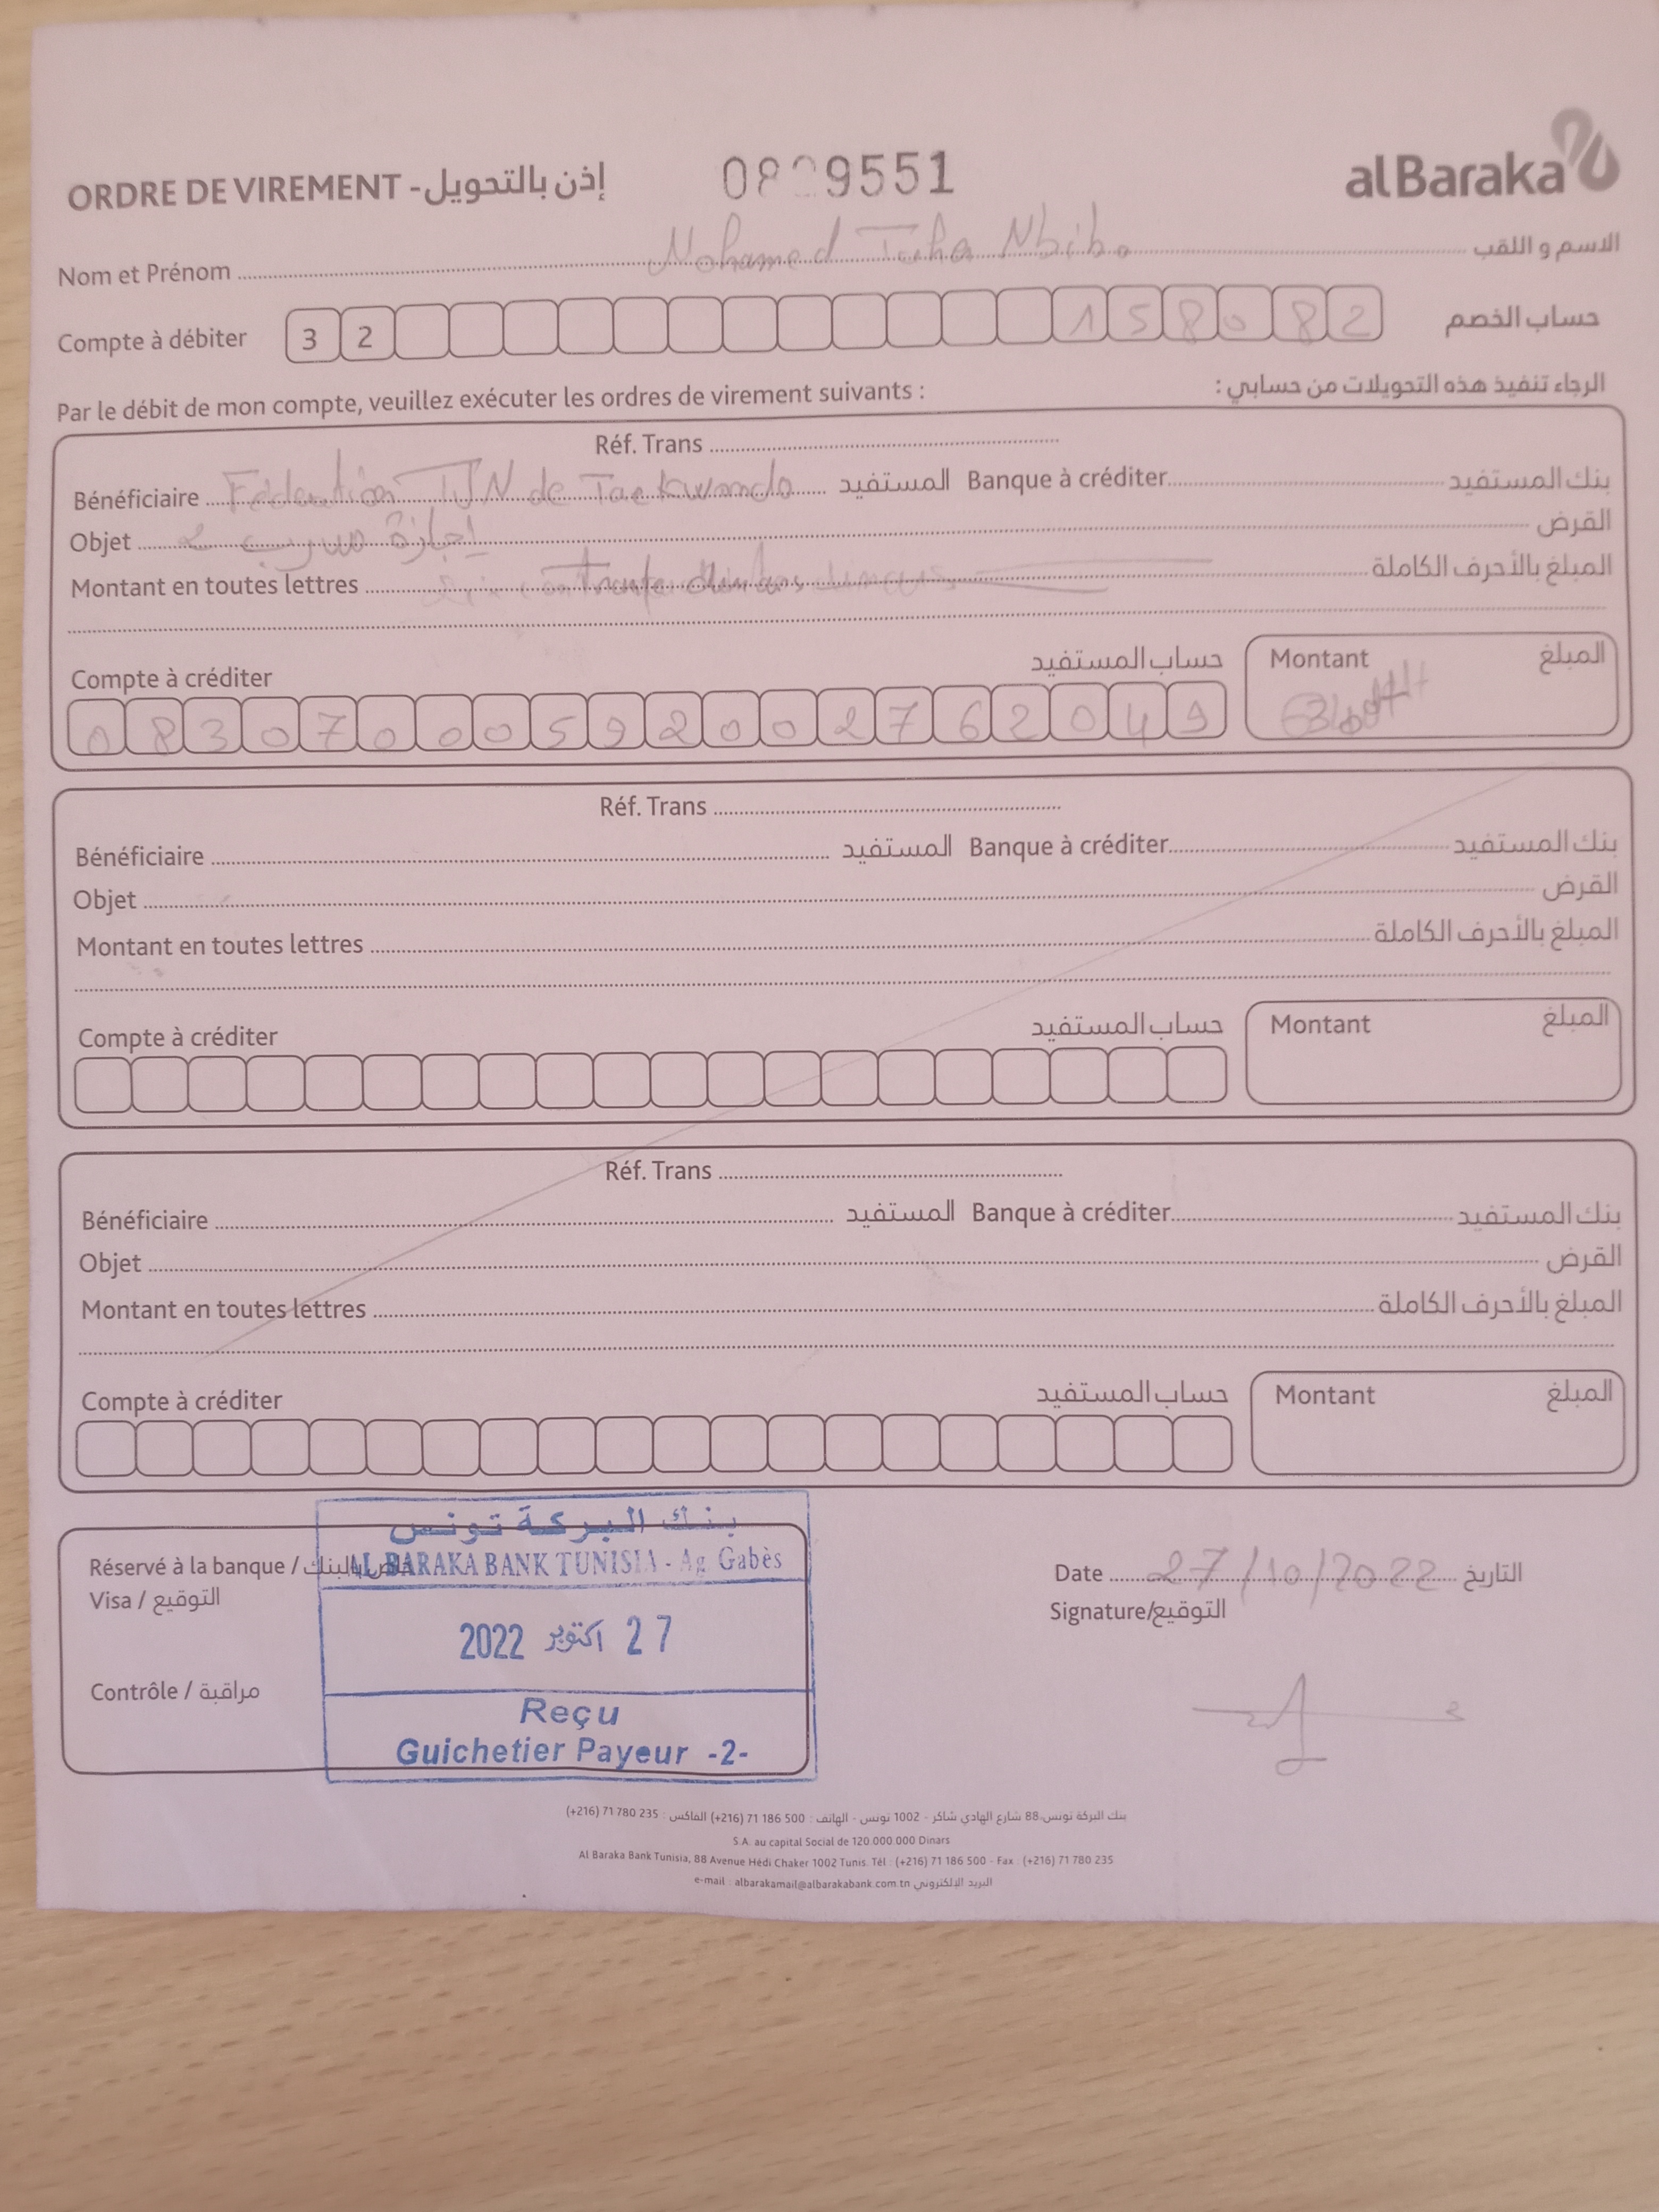 ORDRE DE VIREMENT - إذن بالتحويل
9551
alBaraka
Nom et Prénom Mohamed Taha الاسم و اللقب
Compte à débiter 3 2 1 5 8 0 8 2 حساب الخصم
Par le débit de mon compte, veuillez exécuter les ordres de virement suivants : الرجاء تنفيذ هذه التحويلات من حسابي :
Réf. Trans
Bénéficiaire Fédération TUN de Taekwondo المستفيد Banque à créditer بنك المستفيد
Objet إجازة مدرب 2 القرض
Montant en toutes lettres المبلغ بالأحرف الكاملة
Compte à créditer حساب المستفيد Montant المبلغ
0 8 3 0 7 0 0 0 5 9 2 0 0 2 7 6 2 0 4 9
Réf. Trans
Bénéficiaire المستفيد Banque à créditer بنك المستفيد
Objet القرض
Montant en toutes lettres المبلغ بالأحرف الكاملة
Compte à créditer حساب المستفيد Montant المبلغ
Réf. Trans
Bénéficiaire المستفيد Banque à créditer بنك المستفيد
Objet القرض
Montant en toutes lettres المبلغ بالأحرف الكاملة
Compte à créditer حساب المستفيد Montant المبلغ
بنك البركة تونس
Réservé à la banque / خاص بالبنك
AL BARAKA BANK TUNISIA - Ag. Gabès
Visa / التوقيع
27 اكتوبر 2022
Contrôle / مراقبة
Reçu
Guichetier Payeur -2-
Date 27/10/2022 التاريخ
Signature/التوقيع
بنك البركة تونس، 88 شارع الهادي شاكر - 1002 تونس - الهاتف : 500 186 71 (216+) الفاكس : 235 780 71 (216+)
S.A. au capital Social de 120.000.000 Dinars
Al Baraka Bank Tunisia, 88 Avenue Hédi Chaker 1002 Tunis. Tél : (+216) 71 186 500 - Fax : (+216) 71 780 235
e-mail : albarakamail@albarakabank.com.tn البريد الالكتروني